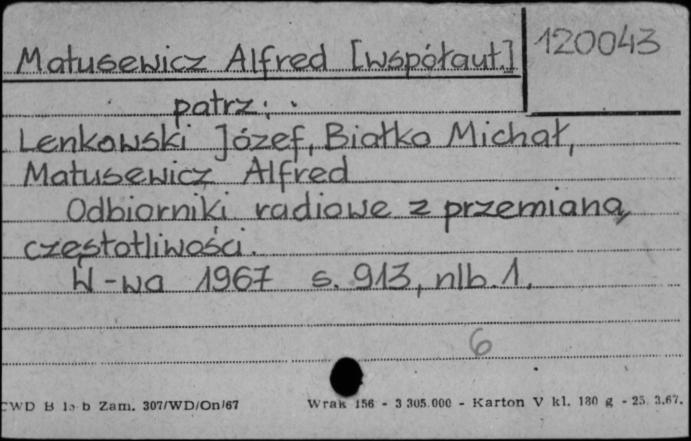 Matusewicz Alfred [współaut.]
120043
patrz:
Lenkowski Józef, Białko Michał,
Matusewicz Alfred
Odbiorniki radiowe z przemianą
częstotliwości.
W-wa 1967 s. 913, nlb. 1.
6
CWD B b Zam. 307/WD/On/67 Wrak 156 - 3 305.000 - Karton V kl. 180 g - 25. 3.67.